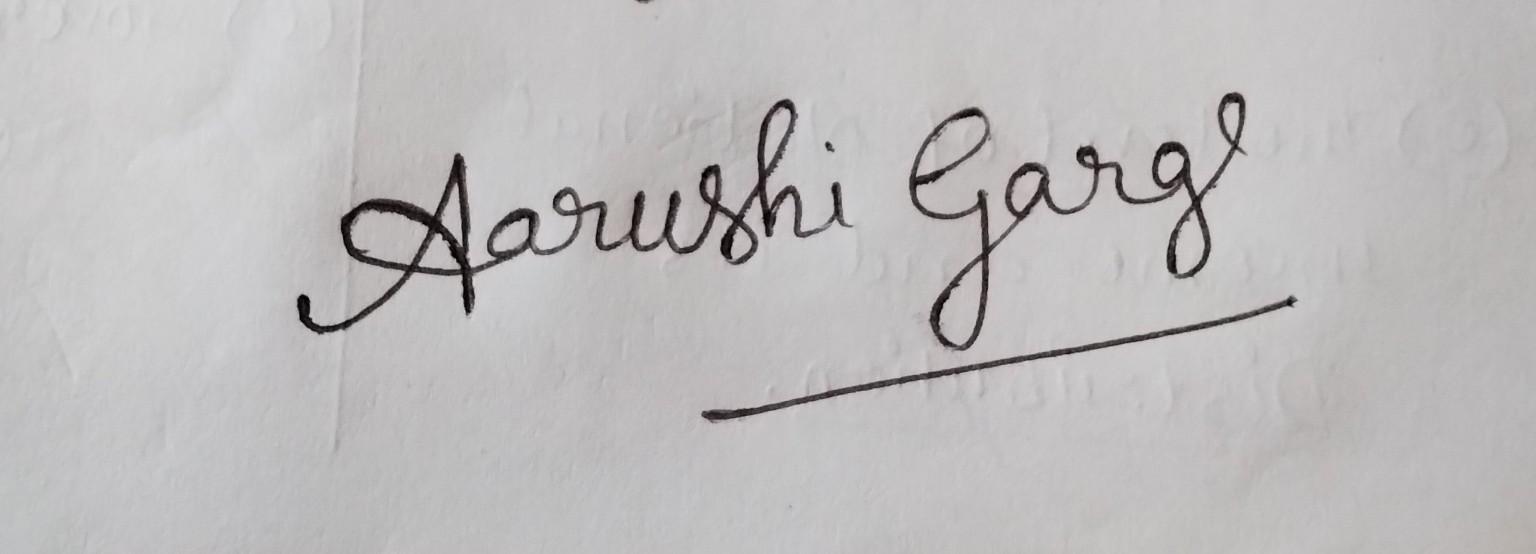 Aarushi Garg